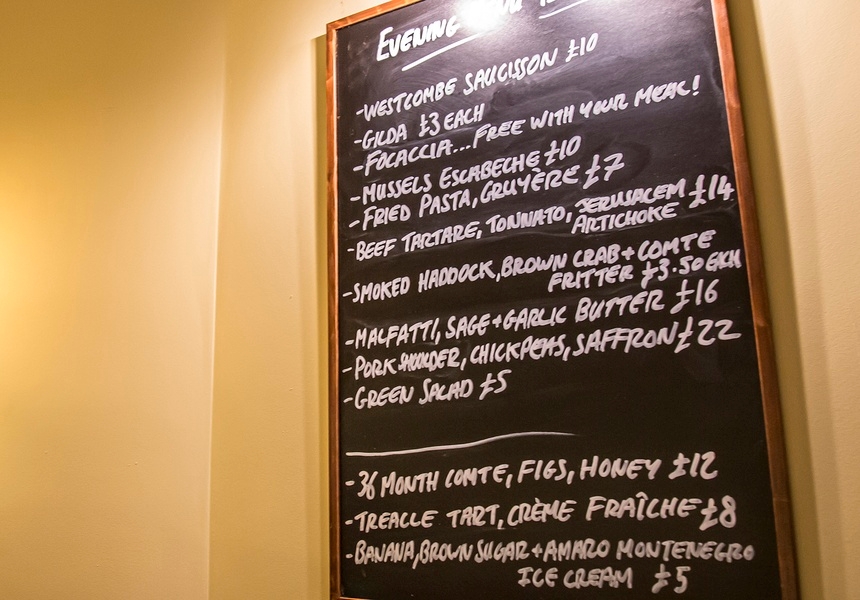 EVENING
-WESTCOMBE SAUCISSON £10
-GILDA £3 EACH
-FOCACCIA...FREE WITH YOUR MEAL!
-MUSSELS ESCABECHE £10
-FRIED PASTA, GRUYÈRE £7
-BEEF TARTARE, TONNATO, JERUSALEM £14
ARTICHOKE
-SMOKED HADDOCK, BROWN CRAB + COMTE
FRITTER £3.50 EACH
-MALFATTI, SAGE + GARLIC BUTTER £16
-PORK SHOULDER, CHICKPEAS, SAFFRON £22
-GREEN SALAD £5
-36 MONTH COMTE, FIGS, HONEY £12
-TREACLE TART, CRÈME FRAÎCHE £8
-BANANA, BROWN SUGAR + AMARO MONTENEGRO
ICE CREAM £5